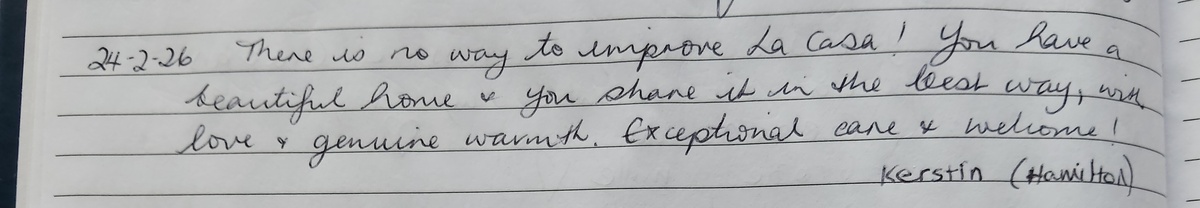 24-2-26 There is no way to improve La Casa! You have a
beautiful home & you share it in the best way, with
love & genuine warmth. Exceptional care & welcome!
Kerstin (Hamilton)